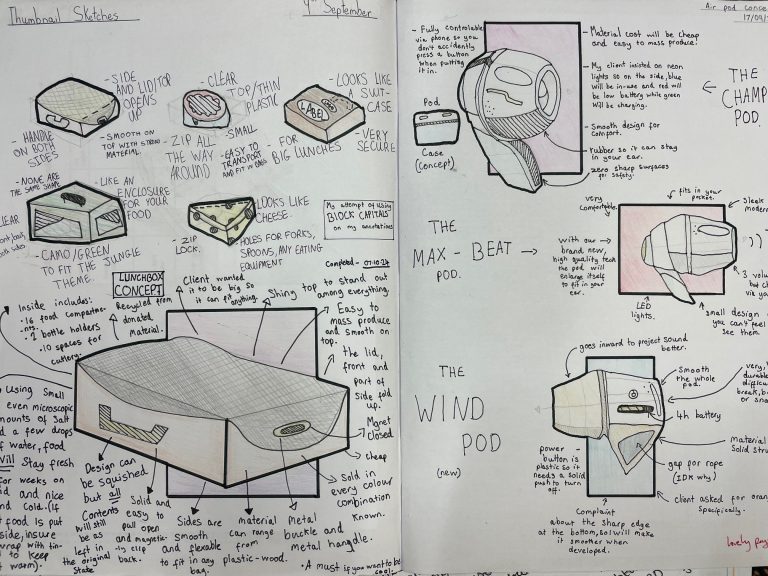 Thumbnail Sketches
4th September
- SIDE
AND LID/TOP
OPENS
UP
- HANDLE
ON BOTH
SIDES
- SMOOTH ON
TOP WITH STRONG
MATERIAL.
- CLEAR
TOP/THIN
PLASTIC
- SMALL
- ZIP ALL
THE WAY
AROUND
- EASY TO
TRANSPORT
AND FIT IN BAGS
- LOOKS LIKE
A SUIT-
CASE
LABEL
- FOR
BIG LUNCHES
- VERY
SECURE
- NONE ARE
THE SAME SHAPE
- LIKE AN
ENCLOSURE
FOR YOUR
FOOD
CLEAR
- CAMO/GREEN
TO FIT THE JUNGLE
THEME.
- LOOKS LIKE
CHEESE.
- ZIP
LOCK.
HOLES FOR FORKS,
SPOONS, ANY EATING
EQUIPMENT
My attempt of using
BLOCK CAPITALS
on my annotations
Completed - 07-10-24
LUNCHBOX
CONCEPT
Inside includes:
- 16 food compartme-
nts.
- 2 bottle holders
- 10 spaces for
cutlery.
Recycled from
donated
Material.
Client wanted
it to be big so
it can fit
anything.
Shiny top to stand out
among everything.
Easy to
mass produce
and smooth on
top.
the lid,
front and
part of
side fold
up.
Mgnet
closed
cheap
Sold in
every colour
combination
known.
Using small
even microscopic
amounts of salt
and a few drops
of water, food
Will stay fresh
for weeks on
and nice
and cold. (If
food is put
inside, insure
wrap with tin-
to keep
warm).
Design can
be squished
but all
contents
will still
be as
left in
the original
state
Solid and
easy to
pull open
and magnetic-
ly clip
back.
Sides are
smooth
and flexible
to fit in any
bag.
material
can range
from
plastic-wood.
Metal
buckle and
metal hangdle.
- A must if you want to be
cool.
Air pod conce
17/09/
- Fully controlable
via phone so you
don't accidently
press a button
when putting
it in.
Pod
Case
(Concept)
- Material cost will be cheap
and easy to mass produce.
- My client insisted on neon
lights so on the side, blue
will be in-use and red will
be low battery while green
will be charging.
- Smooth design for
comfort.
- rubber so it can stay
in your ear.
zero sharp surfaces
for safety.
THE
CHAMP
POD.
THE
MAX - BEAT
POD.
very
comfortable.
fits in your
pocket.
sleek
modern
with our
brand new,
high quality tech
the pod will
enlarge itself
to fit in your
ear.
LED
lights.
3 volu
but c
via yo
small design
you can't feel
see them.
THE
WIND
POD
(new)
goes inward to project sound
better.
Smooth
the whole
pod.
very,
durable
difficul
break, b
or sna
4h battery
material
Solid stru
gap for rope
(IDK why)
power -
button is
plastic so it
needs a solid
push to turn
off.
Client asked for oran
specifically.
Complaint
about the sharp edge
at the bottom, so I will make
it smoother when
developed.
Lovely